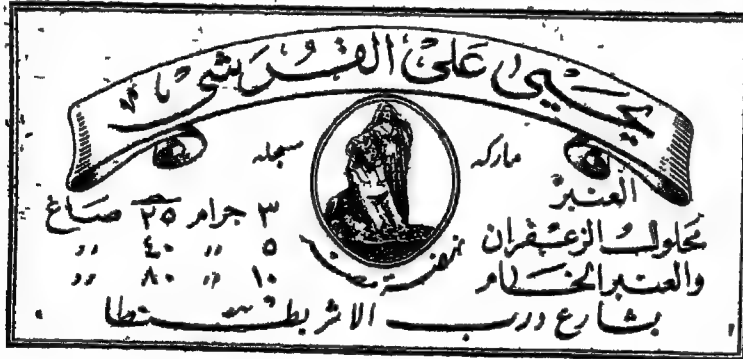 يحيى على القرشى
ماركه سجله
نهضة مصر
العنبر
محلول الزعفران
والعنبر الخام
٣ جرام ٢٥ صاغ
٥ » ٤٠ »
١٠ » ٨٠ »
بشارع درب الاثر بطنطا